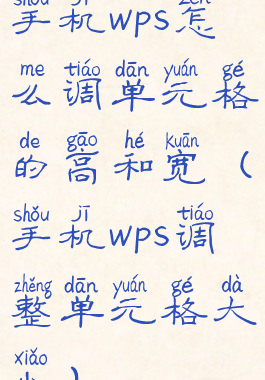 shǒu jī zěn
手机wps怎
me tiáo dān yuán gé
么调单元格
de gāo hé kuān
的高和宽（
shǒu jī tiáo
手机wps调
zhěng dān yuán gé dà
整单元格大
xiǎo
小）